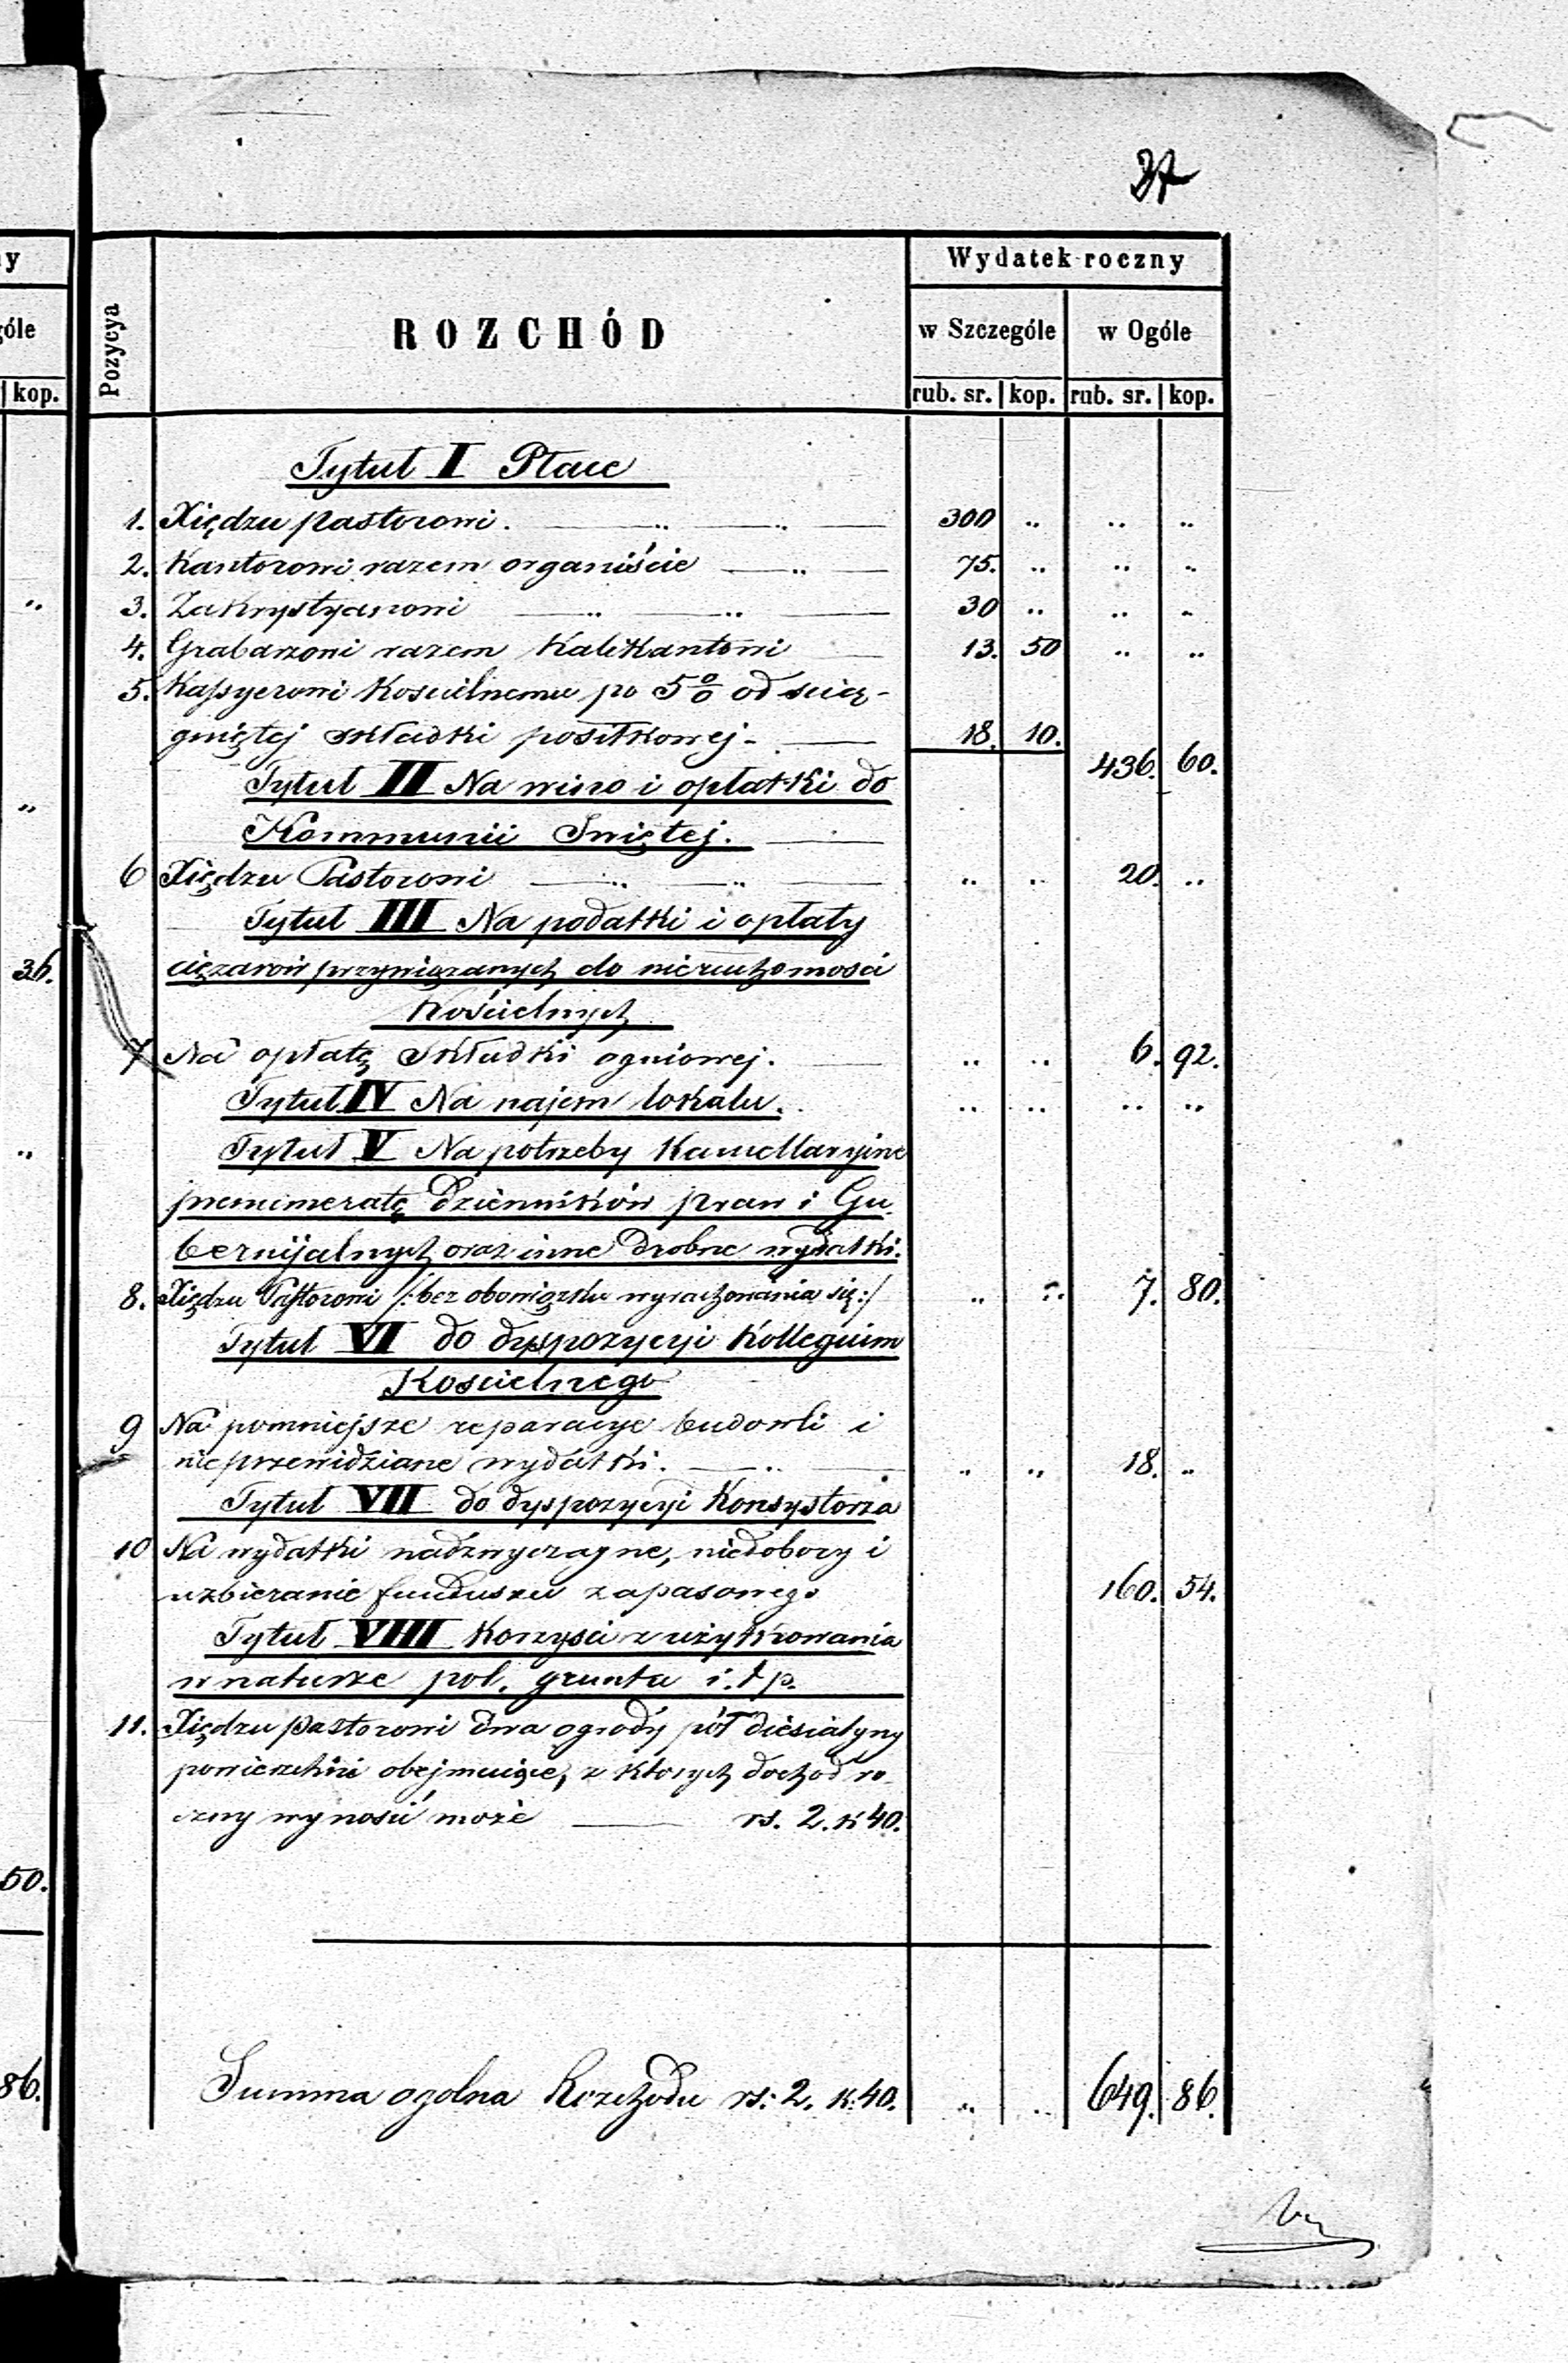 37
y
góle
kop.
„
„
36.
„
50.
86.
Pozycya
ROZCHÓD
Wydatek roczny
w Szczególe w Ogóle
rub. sr. kop. rub. sr. kop.
Tytuł I Płace
1. Xiędzu pastorowi. — „ — „ — 300 „ „ „
2. Kantorowi razem organiście — „ — 75. „ „ „
3. Zakrystyanowi — „ — „ — 30 „ „ „
4. Grabarzowi razem Kalikantowi — 13. 50 „ „
5. Kassyerowi Koscielnemu po 5% od scią-
gniętej składki posiłkowej - — 18. 10. 436. 60.
Tytuł II Na wino i opłatki do
Kommunii Swiętej. —
6 Xiędzu Pastorowi — „ — „ — „ „ 20. „
Tytuł III Na podatki i opłaty
ciężarów przywiązanych do nieruchomosci
Kościelnych
7 Na opłatę składki ogniowej. — „ „ 6. 92.
Tytuł IV Na najem lokalu. „ „ „ „
Tytuł V Na potrzeby Kancellaryjne
prenumeratę Dzienników praw i Gu-
bernijalnych oraz inne drobne wydatki.
8. Xiędzu Pastorowi /: bez obowiązku wyrachowania się :/ „ „ 7. 80.
Tytuł VI do dyspozycyi Kollegium
Koscielnego
9 Na pomniejsze reparacye budowli i
nieprzewidziane wydatki. — „ — „ „ 18. „
Tytuł VII do dyspozycyi Konsystorza
10 Na wydatki nadzwyczajne, niedobory i
uzbieranie funduszu zapasowego 160. 54.
Tytuł VIII Korzysci z użytkowania
w naturze pol. gruntu i. t p.
11. Xiędzu pastorowi dwa ogrody pół diesiatyny
powierzchni obejmuiące, z ktorych dochod ro-
czny wynosić może — rs. 2. k 40.
Summa ogolna Rozchodu rs: 2. k: 40. „ „ 649. 86.